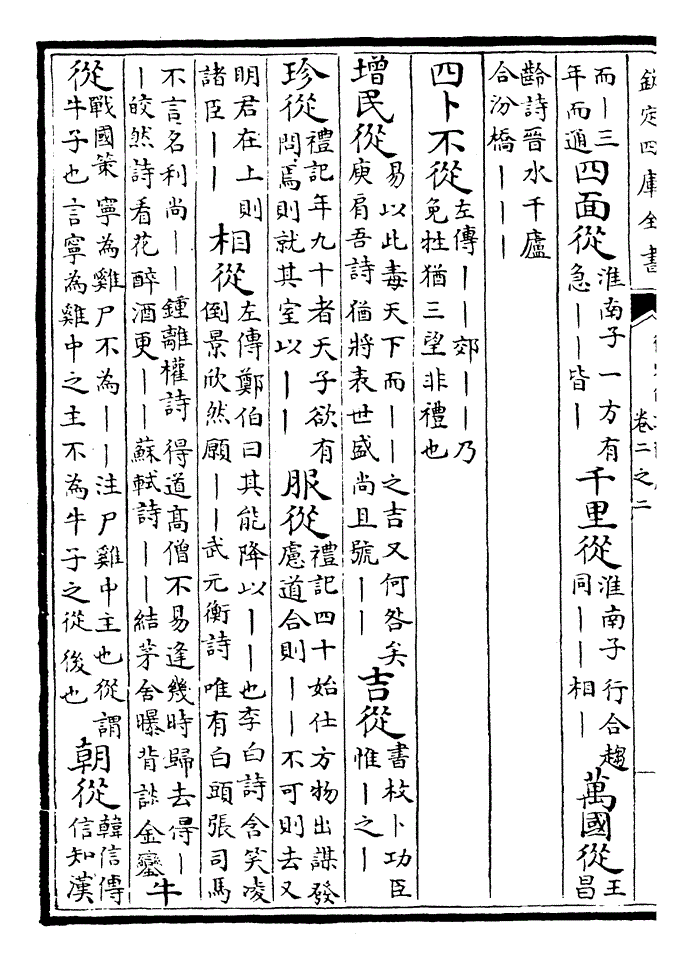 欽定四庫全書
卷二之二
而｜三年而通
四面從
淮南子一方有急｜｜皆｜
千里從
淮南子行合趨同｜｜相｜
萬國從
王昌
齡詩晉水千廬合汾橋｜｜｜
四卜不從
左傳｜｜郊｜｜乃免牲猶三望非禮也
增民從
易以此毒天下而｜｜之吉又何咎矣庾肩吾詩猶將表世盛尚且號｜｜
吉從
書枚卜功臣惟｜之｜
珍從
禮記年九十者天子欲有問焉則就其室以｜｜
服從
禮記四十始仕方物出謀發慮道合則｜｜不可則去又
明君在上則諸臣｜｜
相從
左傳鄭伯曰其能降以｜｜也李白詩含笑凌倒景欣然願｜｜武元衡詩唯有白頭張司馬
不言名利尚｜｜鍾離權詩得道高僧不易逢幾時歸去得｜｜皎然詩看花醉酒更｜｜蘇軾詩｜｜結茅舍曝背談金鑾
牛
從
戰國策寧為雞尸不為｜｜注尸雞中主也從謂牛子也言寧為雞中之主不為牛子之從後也
朝從
韓信傳信知漢